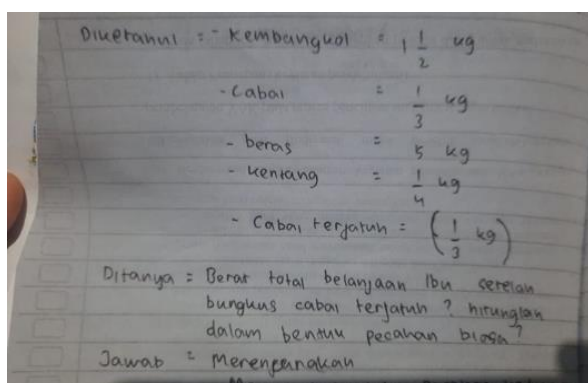 Diketahui = - Kembangkol = 1 1/2 kg
- Cabai = 1/3 kg
- beras = 5 kg
- kentang = 1/4 kg
- Cabai terjatuh = (1/3 kg)
Ditanya = Berat total belanjaan Ibu setelah
bungkus cabai terjatuh ? hitunglah
dalam bentuk pecahan biasa ?
Jawab = Merencanakan